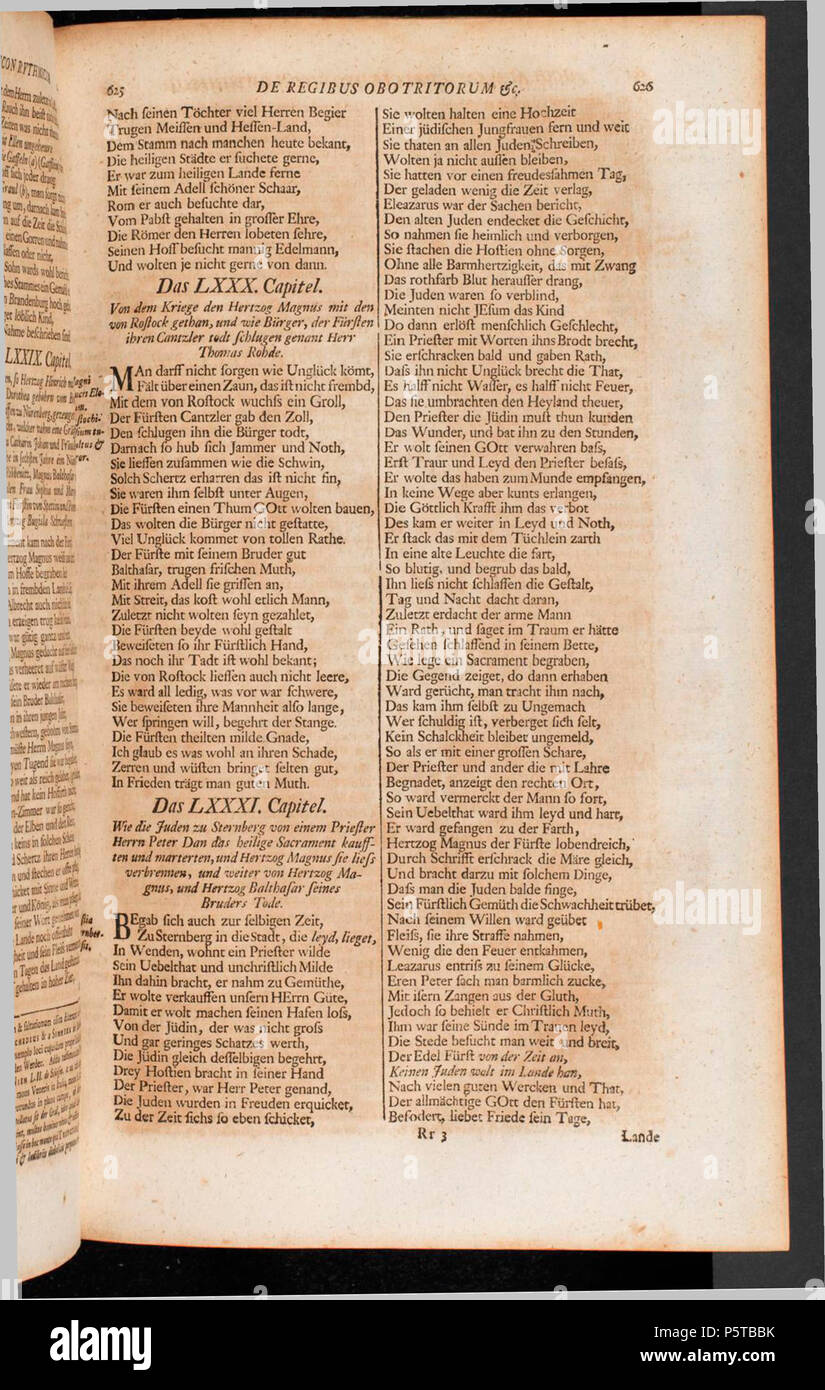 625 DE REGIBUS OBOTRITORUM &c. 626
Nach seinen Töchter viel Herren Begier
Trugen Meissen und Hessen-Land,
Dem Stamm nach manchen heute bekant,
Die heiligen Städte er suchete gerne,
Er war zum heiligen Lande ferne
Mit seinem Adell schöner Schaar,
Rom er auch besuchte dar,
Vom Pabst gehalten in grosser Ehre,
Die Römer den Herren lobeten sehre,
Seinen Hoff besucht mannig Edelmann,
Und wolten je nicht gerne von dann.
Das LXXX. Capitel.
Von dem Kriege den Hertzog Magnus mit den
von Rostock gethan, und wie Bürger, der Fürsten
ihren Cantzler todt schlugen genant Herr
Thomas Rohde.
MAn darff nicht sorgen wie Unglück kömt,
Fält über einen Zaun, das ist nicht frembd,
Mit dem von Rostock wuchss ein Groll,
Der Fürsten Cantzler gab den Zoll,
Den schlugen ihn die Bürger todt,
Darnach so hub sich Jammer und Noth,
Sie liessen zusammen wie die Schwin,
Solch Schertz erharren das ist nicht fin,
Sie waren ihm selbst unter Augen,
Die Fürsten einen Thum GOtt wolten bauen,
Das wolten die Bürger nicht gestatte,
Viel Unglück kommet von tollen Rathe.
Der Fürste mit seinem Bruder gut
Balthasar, trugen frischen Muth,
Mit ihrem Adell sie griffen an,
Mit Streit, das kost wohl etlich Mann,
Zuletzt nicht wolten seyn gezahlet,
Die Fürsten beyde wohl gestalt
Beweiseten so ihr Fürstlich Hand,
Das noch ihr Tadt ist wohl bekant;
Die von Rostock liessen auch nicht leere,
Es ward all ledig, was vor war schwere,
Sie beweiseten ihre Mannheit also lange,
Wer springen will, begehrt der Stange.
Die Fürsten theilten milde Gnade,
Ich glaub es was wohl an ihren Schade,
Zerren und wüsten bringet selten gut,
In Frieden trägt man guten Muth.
Das LXXXI. Capitel.
Wie die Juden zu Sternberg von einem Priester
Herrn Peter Dan das heilige Sacrament kauff-
ten und marterten, und Hertzog Magnus sie liess
verbrennen, und weiter von Hertzog Ma-
gnus, und Hertzog Balthasar seines
Bruders Tode.
BEgab sich auch zur selbigen Zeit,
Zu Sternberg in die Stadt, die leyd, lieget,
In Wenden, wohnt ein Priester wilde
Sein Uebelthat und unchristlich Milde
Ihn dahin bracht, er nahm zu Gemüthe,
Er wolte verkauffen unsern HErrn Güte,
Damit er wolt machen seinen Hasen loss,
Von der Jüdin, der was nicht gross
Und gar geringes Schatzes werth,
Die Jüdin gleich desselbigen begehrt,
Drey Hostien bracht in seiner Hand
Der Priester, war Herr Peter genand,
Die Juden wurden in Freuden erquicket,
Zu der Zeit sichs so eben schicket,
Sie wolten halten eine Hochzeit
Einer jüdischen Jungfrauen fern und weit
Sie thaten an allen Juden Schreiben,
Wolten ja nicht aussen bleiben,
Sie hatten vor einen freudesahmen Tag,
Der geladen wenig die Zeit verlag,
Eleazarus war der Sachen bericht,
Den alten Juden endecket die Geschicht,
So nahmen sie heimlich und verborgen,
Sie stachen die Hostien ohne Sorgen,
Ohne alle Barmhertzigkeit, das mit Zwang
Das rothfarb Blut herausser drang,
Die Juden waren so verblind,
Meinten nicht JEsum das Kind
Do dann erlöst menschlich Geschlecht,
Ein Priester mit Worten ihns Brodt brecht,
Sie erschracken bald und gaben Rath,
Dass ihn nicht Unglück brecht die That,
Es halff nicht Wasser, es halff nicht Feuer,
Das sie umbrachten den Heyland theuer,
Den Priester die Jüdin must thun kunden
Das Wunder, und bat ihn zu den Stunden,
Er wolt seinen GOtt verwahren bass,
Erst Traur und Leyd den Priester besass,
Er wolte das haben zum Munde empfangen,
In keine Wege aber kunts erlangen,
Die Göttlich Krafft ihm das verbot
Des kam er weiter in Leyd und Noth,
Er stack das mit dem Tüchlein zarth
In eine alte Leuchte die fart,
So blutig, und begrub das bald,
Ihn liess nicht schlaffen die Gestalt,
Tag und Nacht dacht daran,
Zuletzt erdacht der arme Mann
Ein Rath, und saget im Traum er hätte
Gesehen schlaffend in seinem Bette,
Wie lege ein Sacrament begraben,
Die Gegend zeiget, do dann erhaben
Ward gerücht, man tracht ihm nach,
Das kam ihm selbst zu Ungemach
Wer schuldig ist, verberget sich selt,
Kein Schalckheit bleibet ungemeld,
So als er mit einer grossen Schare,
Der Priester und ander die mit Lahre
Begnadet, anzeigt den rechten Ort,
So ward vermerckt der Mann so fort,
Sein Uebelthat ward ihm leyd und hart,
Er ward gefangen zu der Farth,
Hertzog Magnus der Fürste lobendreich,
Durch Schrifft erschrack die Märe gleich,
Und bracht darzu mit solchem Dinge,
Dass man die Juden balde finge,
Sein Fürstlich Gemüth die Schwachheit trübet,
Nach seinem Willen ward geübet
Fleiss, sie ihre Straffe nahmen,
Wenig die den Feuer entkahmen,
Leazarus entriss zu seinem Glücke,
Eren Peter sach man barmlich zucke,
Mit isern Zangen aus der Gluth,
Jedoch so behielt er Christlich Muth,
Ihm war seine Sünde im Trauen leyd,
Die Stede besucht man weit und breit,
Der Edel Fürst von der Zeit an,
Keinen Juden wolt im Lande han,
Nach vielen guten Wercken und That,
Der allmächtige GOtt den Fürsten hat,
Befodert, liebet Friede sein Tage,
Rr 3 Lande
alamy
Image ID: P5TBBK
www.alamy.com